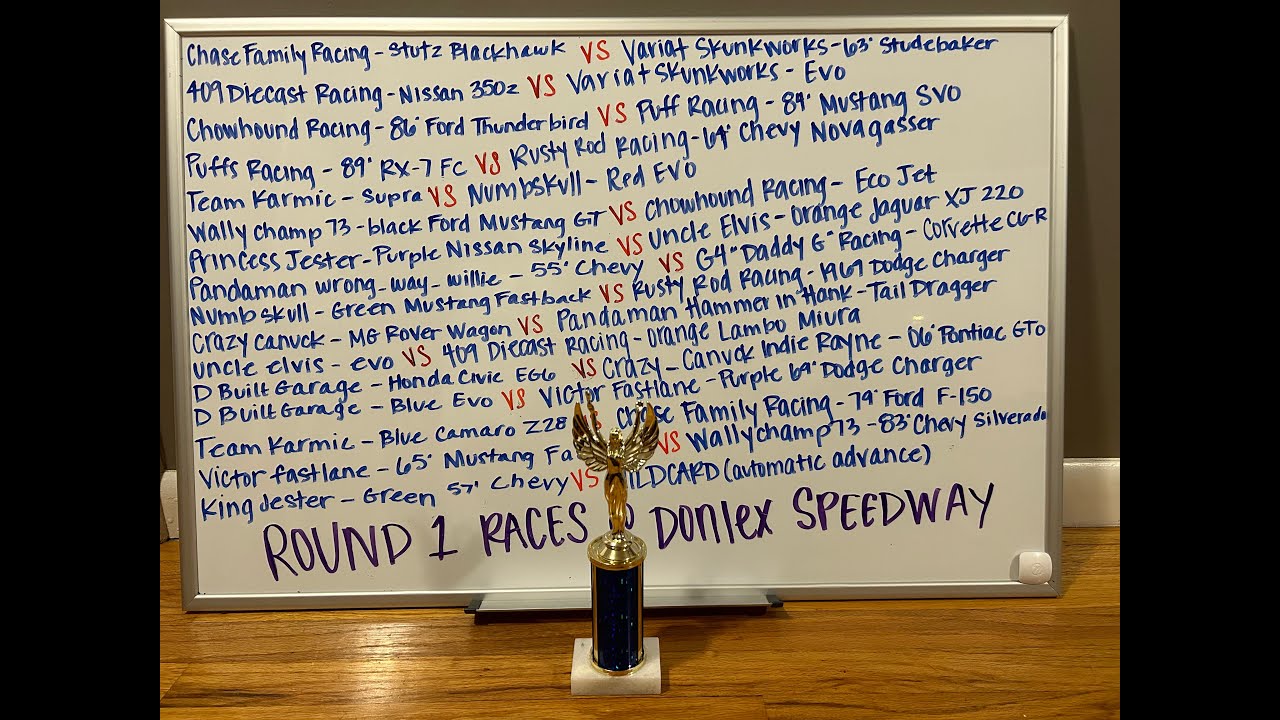 Chase Family Racing - Stutz Blackhawk VS Variat Skunkworks - 63' Studebaker
409 Diecast Racing - Nissan 350z VS Variat Skunkworks - Evo
Chowhound Racing - 86' Ford Thunderbird VS Puff Racing - 84' Mustang SVO
Puffs Racing - 89' RX-7 FC VS Rusty Rod Racing - 64' Chevy Nova gasser
Team Karmic - Supra VS Numbskull - Red EVO
Wally champ 73 - black Ford Mustang GT VS Chowhound Racing - Eco Jet
Princess Jester - Purple Nissan Skyline VS Uncle Elvis - Orange Jaguar XJ 220
Pandaman wrong-way-willie - 55' Chevy VS G4 "Daddy G" Racing - Corvette C6-R
Numb Skull - Green Mustang Fastback VS Rusty Rod Racing - 1969 Dodge Charger
Crazy Canuck - MG Rover Wagon VS Pandaman Hammer in Hank - Tail Dragger
uncle elvis - evo VS 409 Diecast Racing - Orange Lambo Miura
D Built Garage - Honda Civic EG6 VS Crazy - Canuck Indie Rayne - 06' Pontiac GTO
D Built Garage - Blue Evo VS Victor Fastlane - Purple 69' Dodge Charger
Team Karmic - Blue Camaro Z28 Chase Family Racing - 79' Ford F-150
Victor fastlane - 65' Mustang Fa VS Wallychamp 73 - 83' Chevy Silverado
King Jester - Green 57' Chevy VS ILDCARD (automatic advance)
ROUND 1 RACES @ Donlex SPEEDWAY